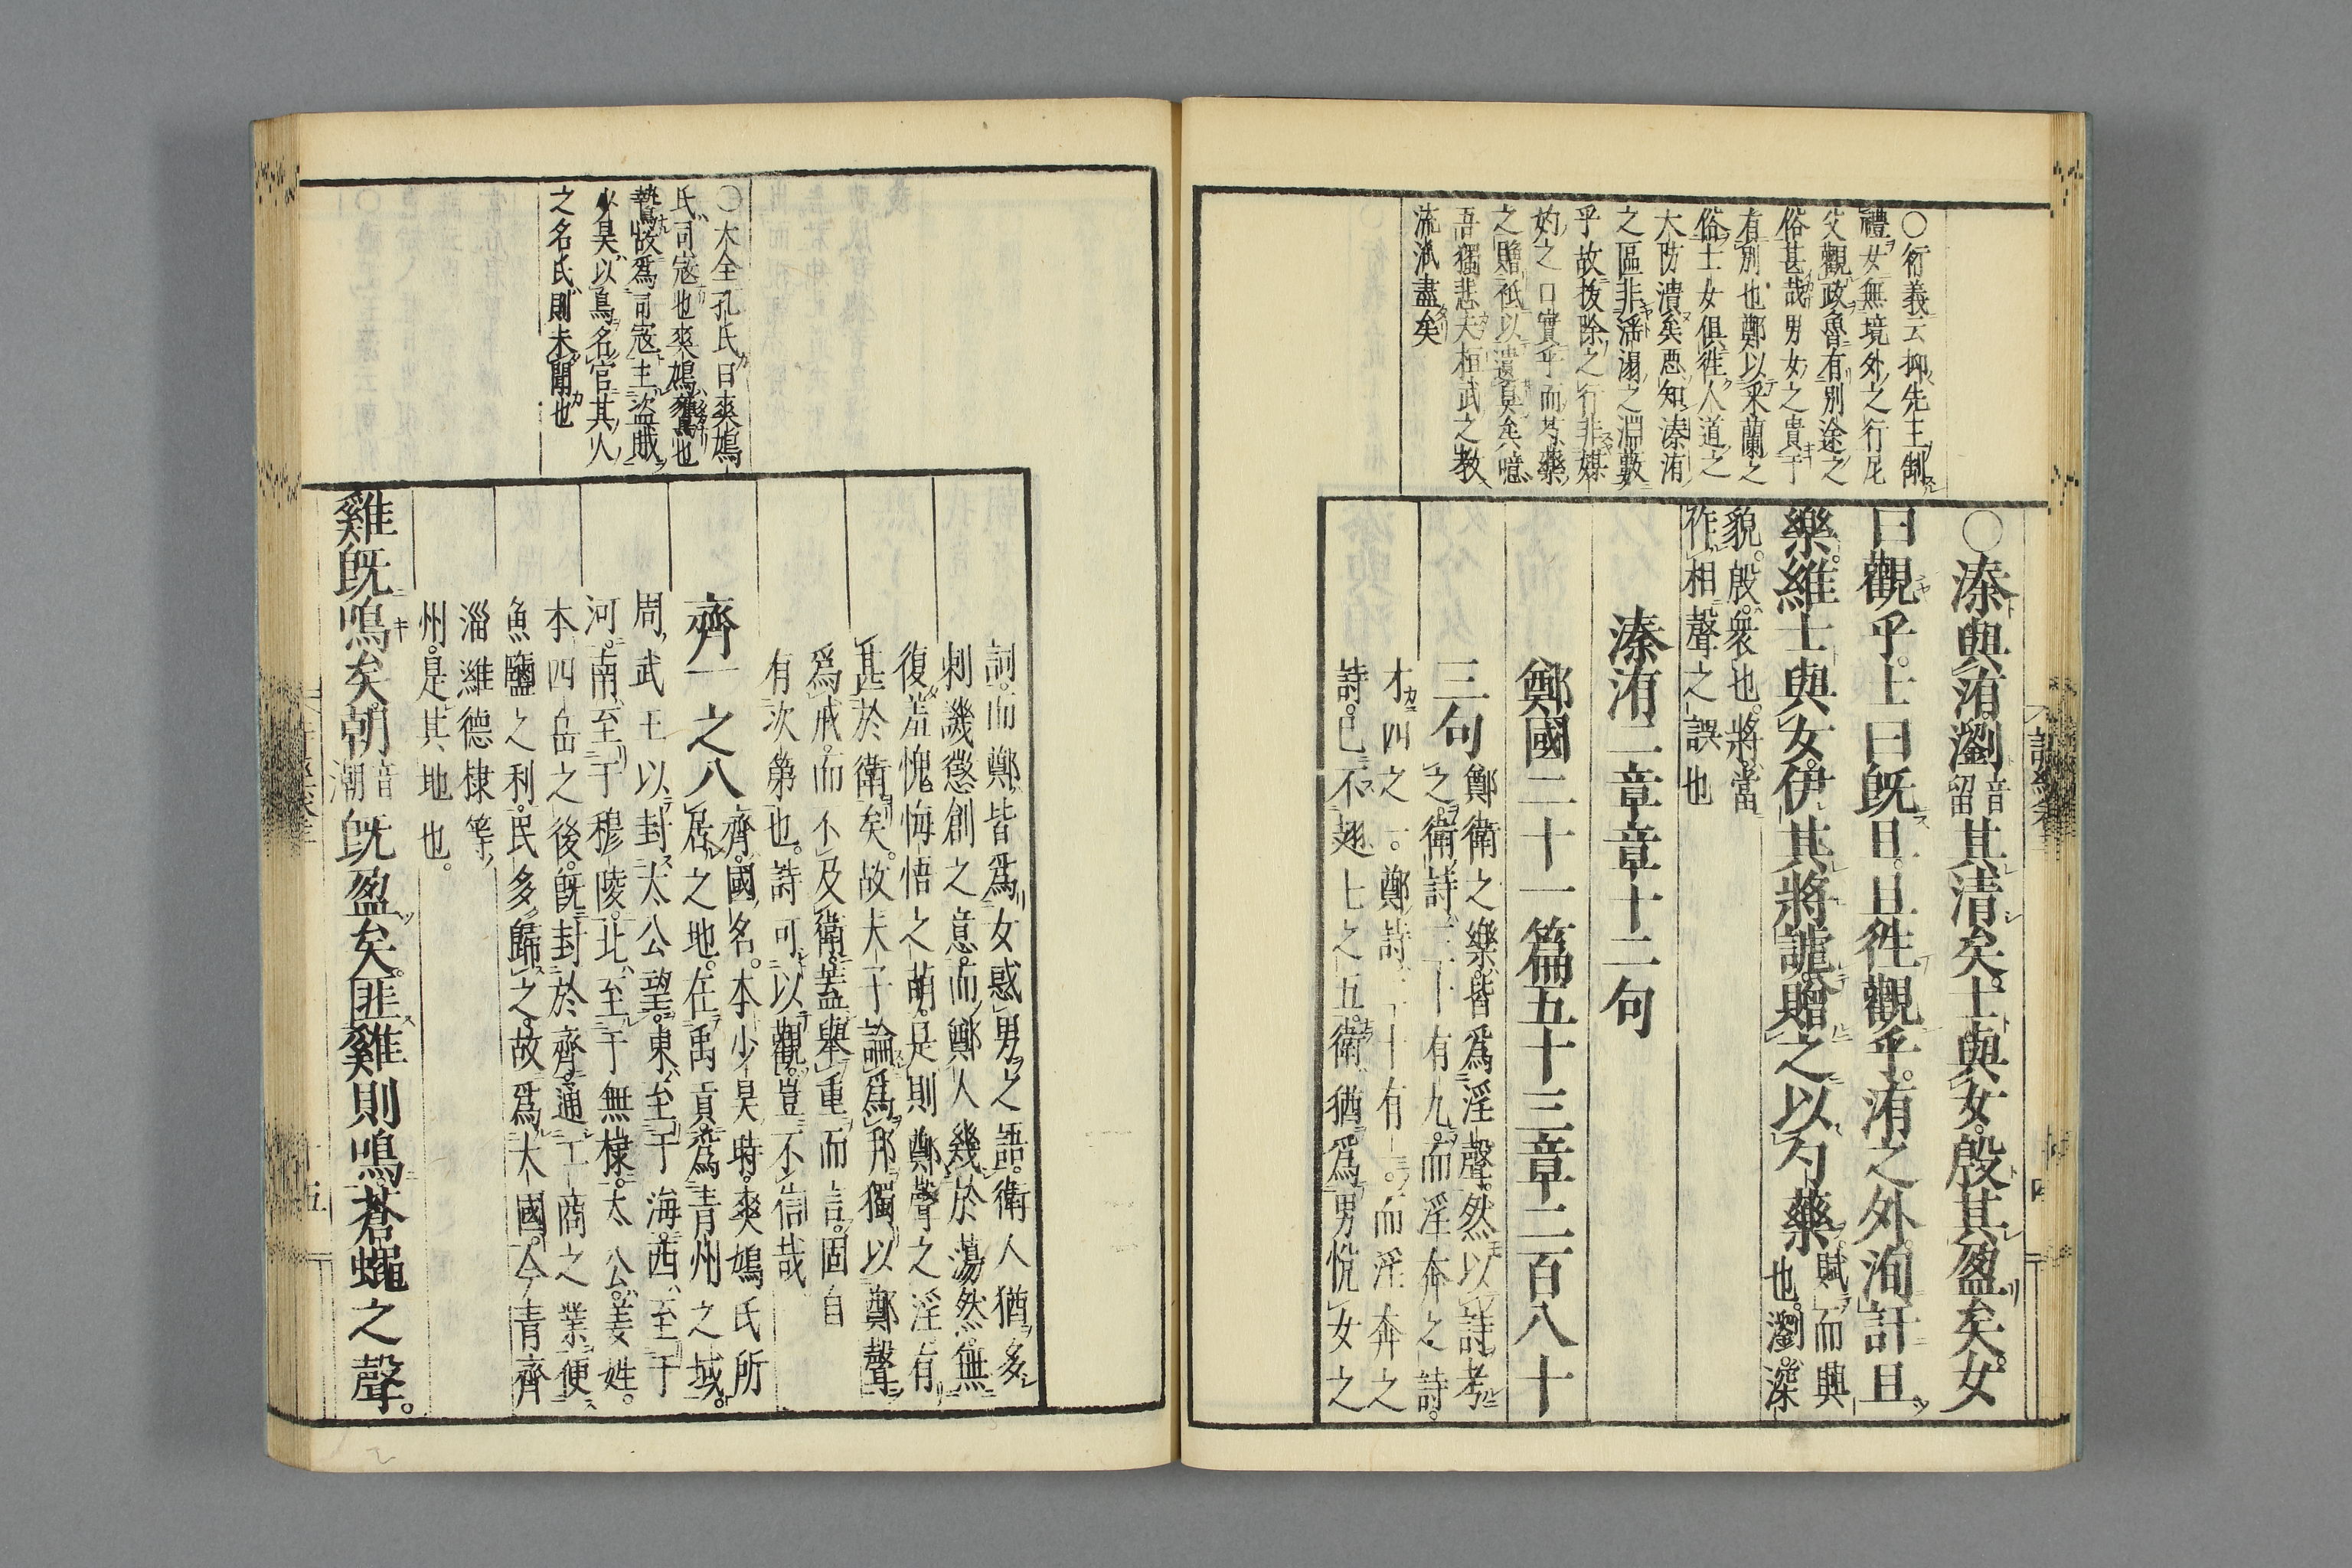 ○衍義云抑先王制
禮女無境外之行尼
父觀政魯有別途之
俗甚哉男女之貴于
有別也鄭以采蘭之
俗士女俱徃人道之
大防潰矣悪知溱洧
之區非滛溺之淵藪
乎故祓除之行非媒
妁之口實乎而芍藥
之贈祇以遺臭矣噫
吾獨悲夫桓武之教
流洟盡矣
○溱與洧瀏音留其清矣。士與女。殷其盈矣。女
曰觀乎。士曰既且。且徃觀乎。洧之外。洵訏且
樂。維士與女。伊其將謔。贈之以勺藥。賦而興也。瀏。深
貌。殷。衆也。將。當作相聲之誤也
溱洧二章章十二句
鄭國二十一篇五十三章二百八十
三句鄭衛之樂。皆爲淫聲。然以詩考之。衛詩三十有九。而淫奔之詩。
才四之一。鄭詩二十有一。而淫奔之
詩。已不翅七之五。衛猶爲男悅女之
詞。而鄭皆爲女惑男之語。衛人猶多
刺譏懲創之意。而鄭人幾於蕩然無
復羞愧悔悟之萌。是則鄭聲之淫。有
甚於衛矣。故夫子論爲邦。獨以鄭聲
爲戒。而不及衛。蓋舉重而言。固自
有次第也。詩可以觀。豈不信哉
齊一之八齊。國名。本少昊時。爽鳩氏所居之地。在禹貢爲青州之域。
周武王以封太公望。東至于海。西至于
河。南至于穆陵。北至于無棣。太公。姜姓。
本四岳之後。既封於齊。通工商之業。便
魚鹽之利。民多歸之。故爲大國。今青齊
淄濰德棣等
州。是其地也。
雞既鳴矣。朝音潮既盈矣。匪雞則鳴。蒼蠅之聲。
○大全孔氏曰爽鳩
氏司寇也爽鳩鷹也
鷙故爲司寇主盗賊
少昊以鳥名官其人
之名氏則未聞也